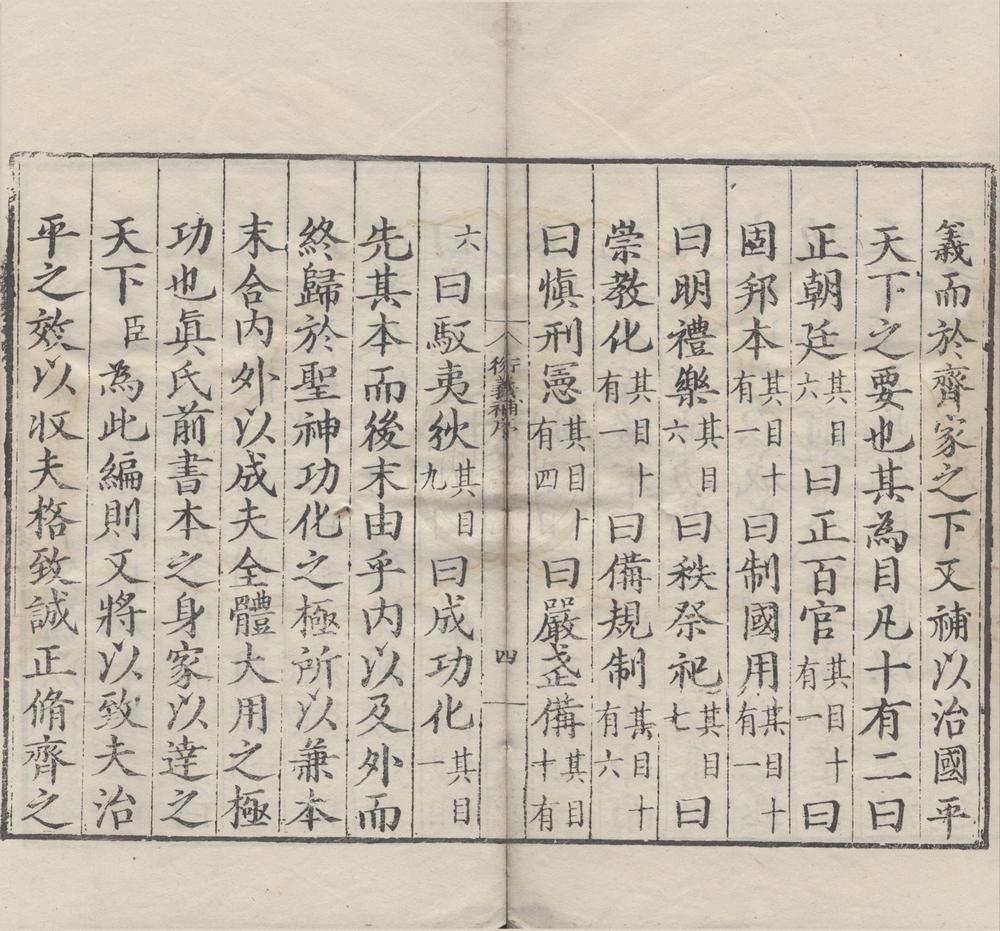 義而於齊家之下又補以治國平
天下之要也其為目凡十有二曰
正朝廷其目六曰正百官其目十有一曰
固邦本其目十有一曰制國用其目十有一
曰明禮樂其目六曰秩祭祀其目七曰
崇教化其目十有一曰備規制其目十有六
曰慎刑憲其目十有四曰嚴武備其目十有
衍義補序
四
六曰馭夷狄其目九曰成功化其目一
先其本而後末由乎內以及外而
終歸於聖神功化之極所以兼本
末合內外以成夫全體大用之極
功也眞氏前書本之身家以達之
天下臣為此編則又將以致夫治
平之效以收夫格致誠正脩齊之